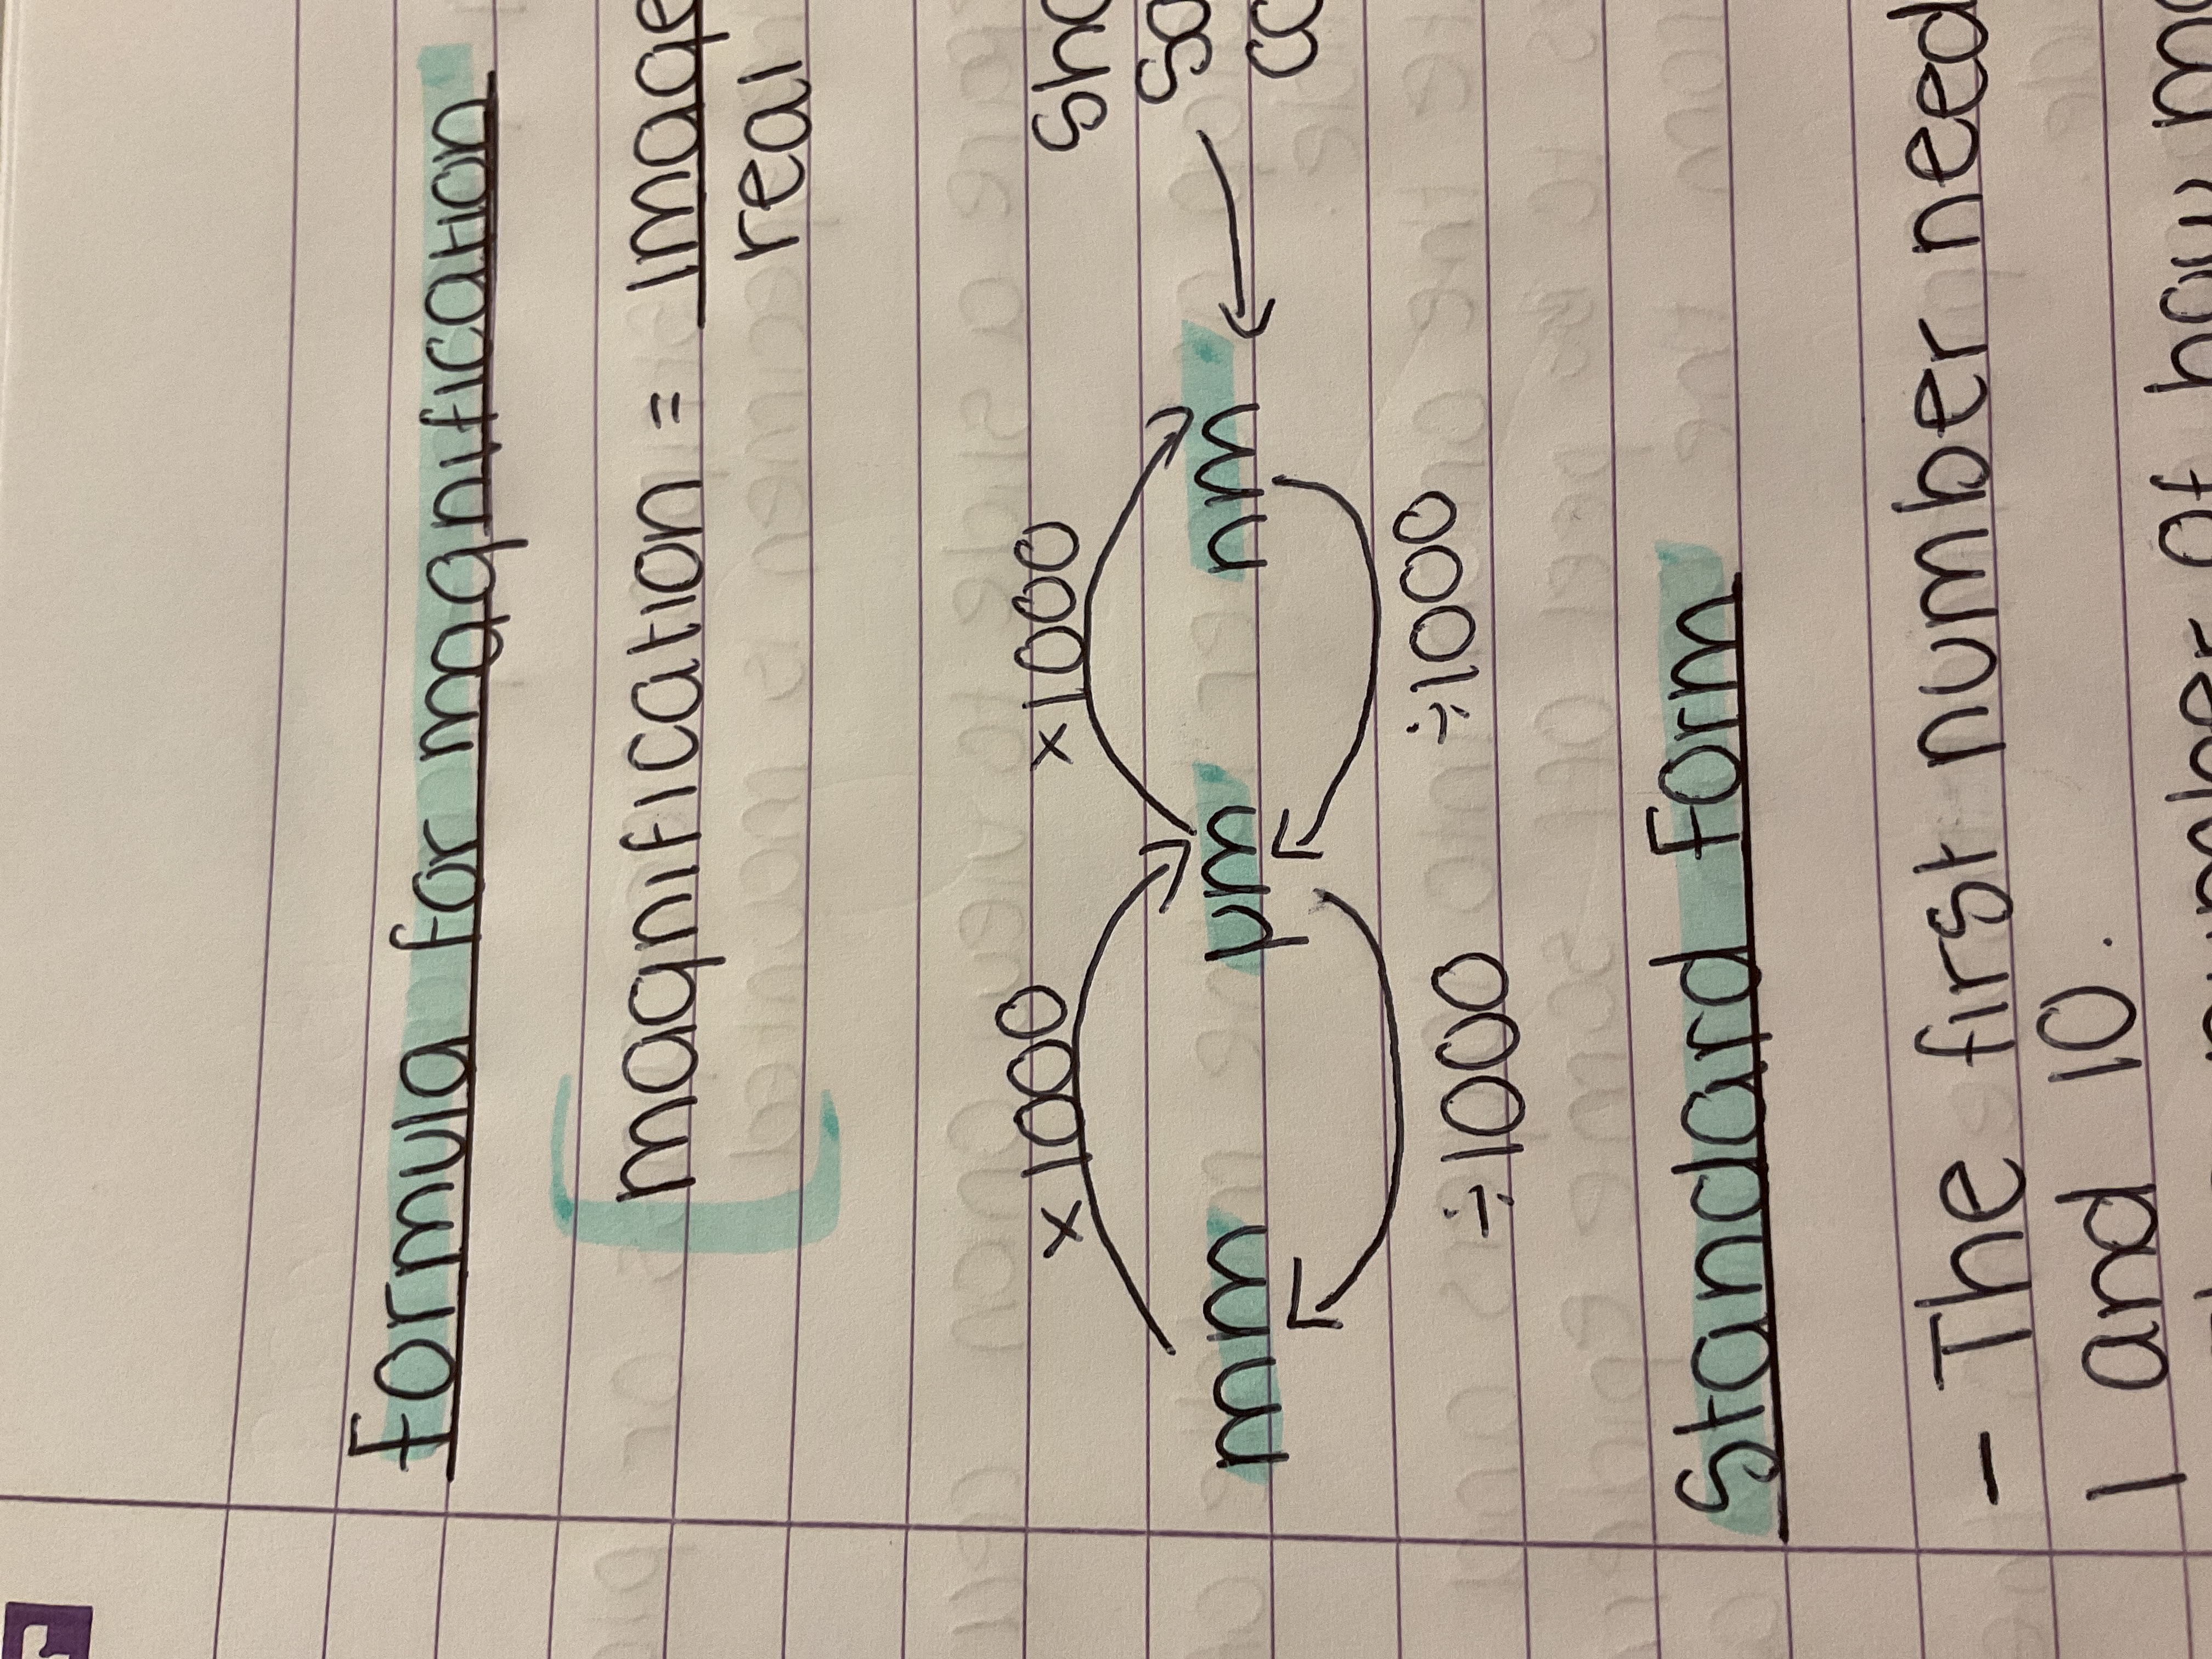 Formula for magnification
magnification = image
real
x1000 x1000
mm µm nm
÷1000 ÷1000
Standard form
- The first number need
1 and 10.
of how